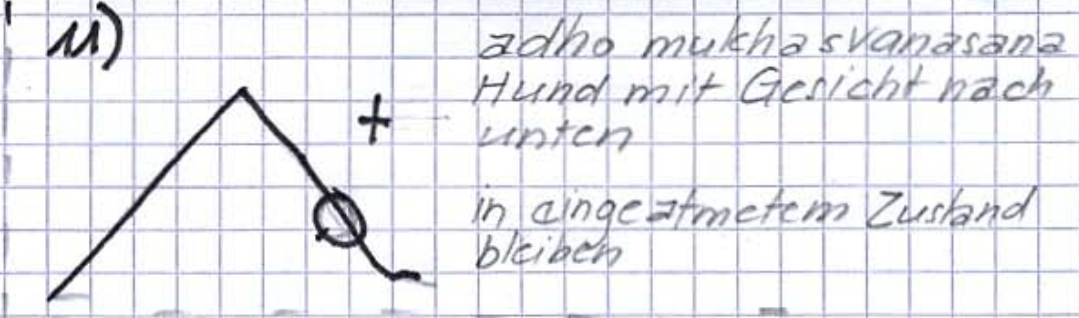 11)
adho mukha svanasana
Hund mit Gesicht nach
unten
+
in eingeatmetem Zustand
bleiben